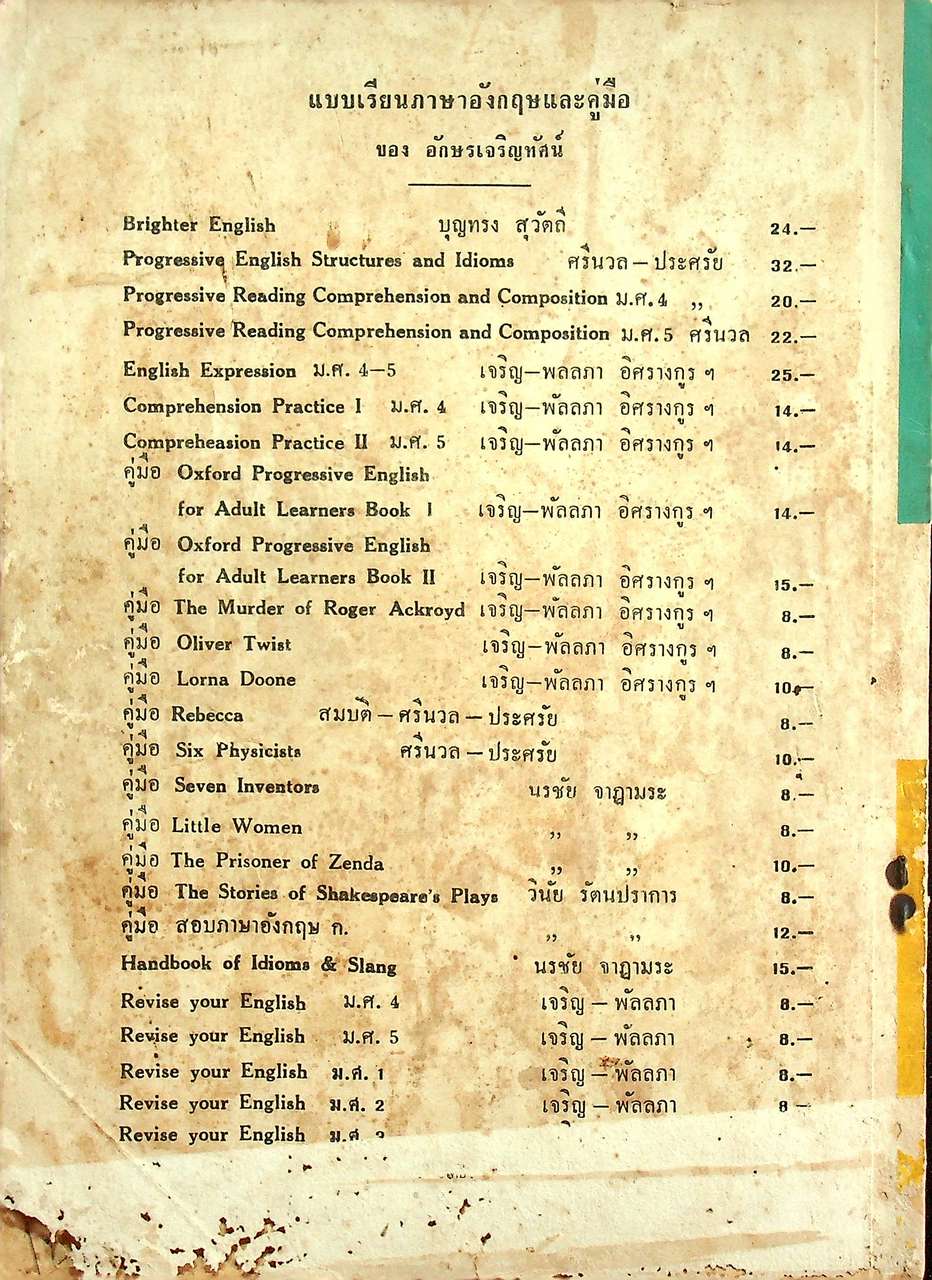 แบบเรียนภาษาอังกฤษและคู่มือ
ของ อักษรเจริญทัศน์
Brighter English บุญทรง สุวัตถี 24.—
Progressive English Structures and Idioms ศรีนวล — ประศรัย 32.—
Progressive Reading Comprehension and Composition ม.ศ. 4 ,, 20.—
Progressive Reading Comprehension and Composition ม.ศ. 5 ศรีนวล 22.—
English Expression ม.ศ. 4—5 เจริญ—พลลภา อิศรางกูร ฯ 25.—
Comprehension Practice I ม.ศ. 4 เจริญ—พัลลภา อิศรางกูร ฯ 14.—
Compreheasion Practice II ม.ศ. 5 เจริญ—พัลลภา อิศรางกูร ฯ 14.—
คู่มือ Oxford Progressive English
for Adult Learners Book I เจริญ—พัลลภา อิศรางกูร ฯ 14.—
คู่มือ Oxford Progressive English
for Adult Learners Book II เจริญ—พัลลภา อิศรางกูร ฯ 15.—
คู่มือ The Murder of Roger Ackroyd เจริญ—พัลลภา อิศรางกูร ฯ 8.—
คู่มือ Oliver Twist เจริญ—พัลลภา อิศรางกูร ฯ 8.—
คู่มือ Lorna Doone เจริญ—พัลลภา อิศรางกูร ฯ 10.—
คู่มือ Rebecca สมบติ — ศรีนวล — ประศรัย 8.—
คู่มือ Six Physicists ศรีนวล — ประศรัย 10.—
คู่มือ Seven Inventors นรชัย จาฏามระ 8.—
คู่มือ Little Women ,, ,, 8.—
คู่มือ The Prisoner of Zenda ,, ,, 10.—
คู่มือ The Stories of Shakespeare's Plays วินัย รัตนปราการ 8.—
คู่มือ สอบภาษาอังกฤษ ก. ,, ,, 12.—
Handbook of Idioms & Slang นรชัย จาฏามระ 15.—
Revise your English ม.ศ. 4 เจริญ — พัลลภา 8.—
Revise your English ม.ศ. 5 เจริญ — พัลลภา 8.—
Revise your English ม.ศ. 1 เจริญ — พัลลภา 8.—
Revise your English ม.ศ. 2 เจริญ — พัลลภา 8 —
Revise your English ม.ศ